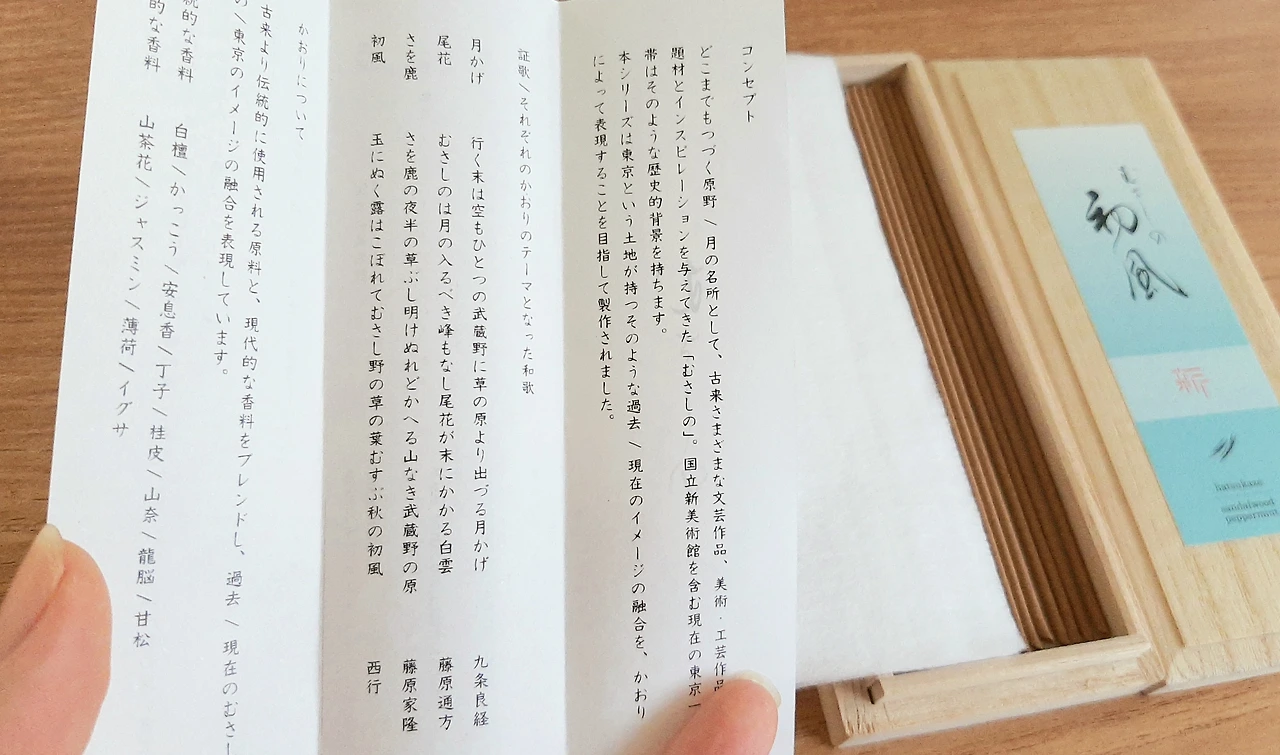 コンセプト
どこまでもつづく原野 \ 月の名所として、古来さまざまな文芸作品、美術・工芸作品
題材とインスピレーションを与えてきた「むさしの」。国立新美術館を含む現在の東京一
帯はそのような歴史的背景を持ちます。
本シリーズは東京という土地が持つそのような過去 \ 現在のイメージの融合を、かおり
によって表現することを目指して製作されました。
証歌 \ それぞれのかおりのテーマとなった和歌
月かげ 行く末は空もひとつの武蔵野に草の原より出づる月かげ 九条良経
尾花 むさしのは月の入るべき峰もなし尾花が末にかかる白雲 藤原通方
さを鹿 さを鹿の夜半の草ぶし明けぬれどかへる山なき武蔵野の原 藤原家隆
初風 玉にぬく露はこぼれてむさし野の草の葉むすぶ秋の初風 西行
かおりについて
古来より伝統的に使用される原料と、現代的な香料をブレンドし、過去 \ 現在のむさし
の \ 東京のイメージの融合を表現しています。
統的な香料 白檀 \ かっこう \ 安息香 \ 丁子 \ 桂皮 \ 山奈 \ 龍脳 \ 甘松
的な香料 山茶花 \ ジャスミン \ 薄荷 \ イグサ
むさしの
初風
hatsukaze
sandalwood
peppermint